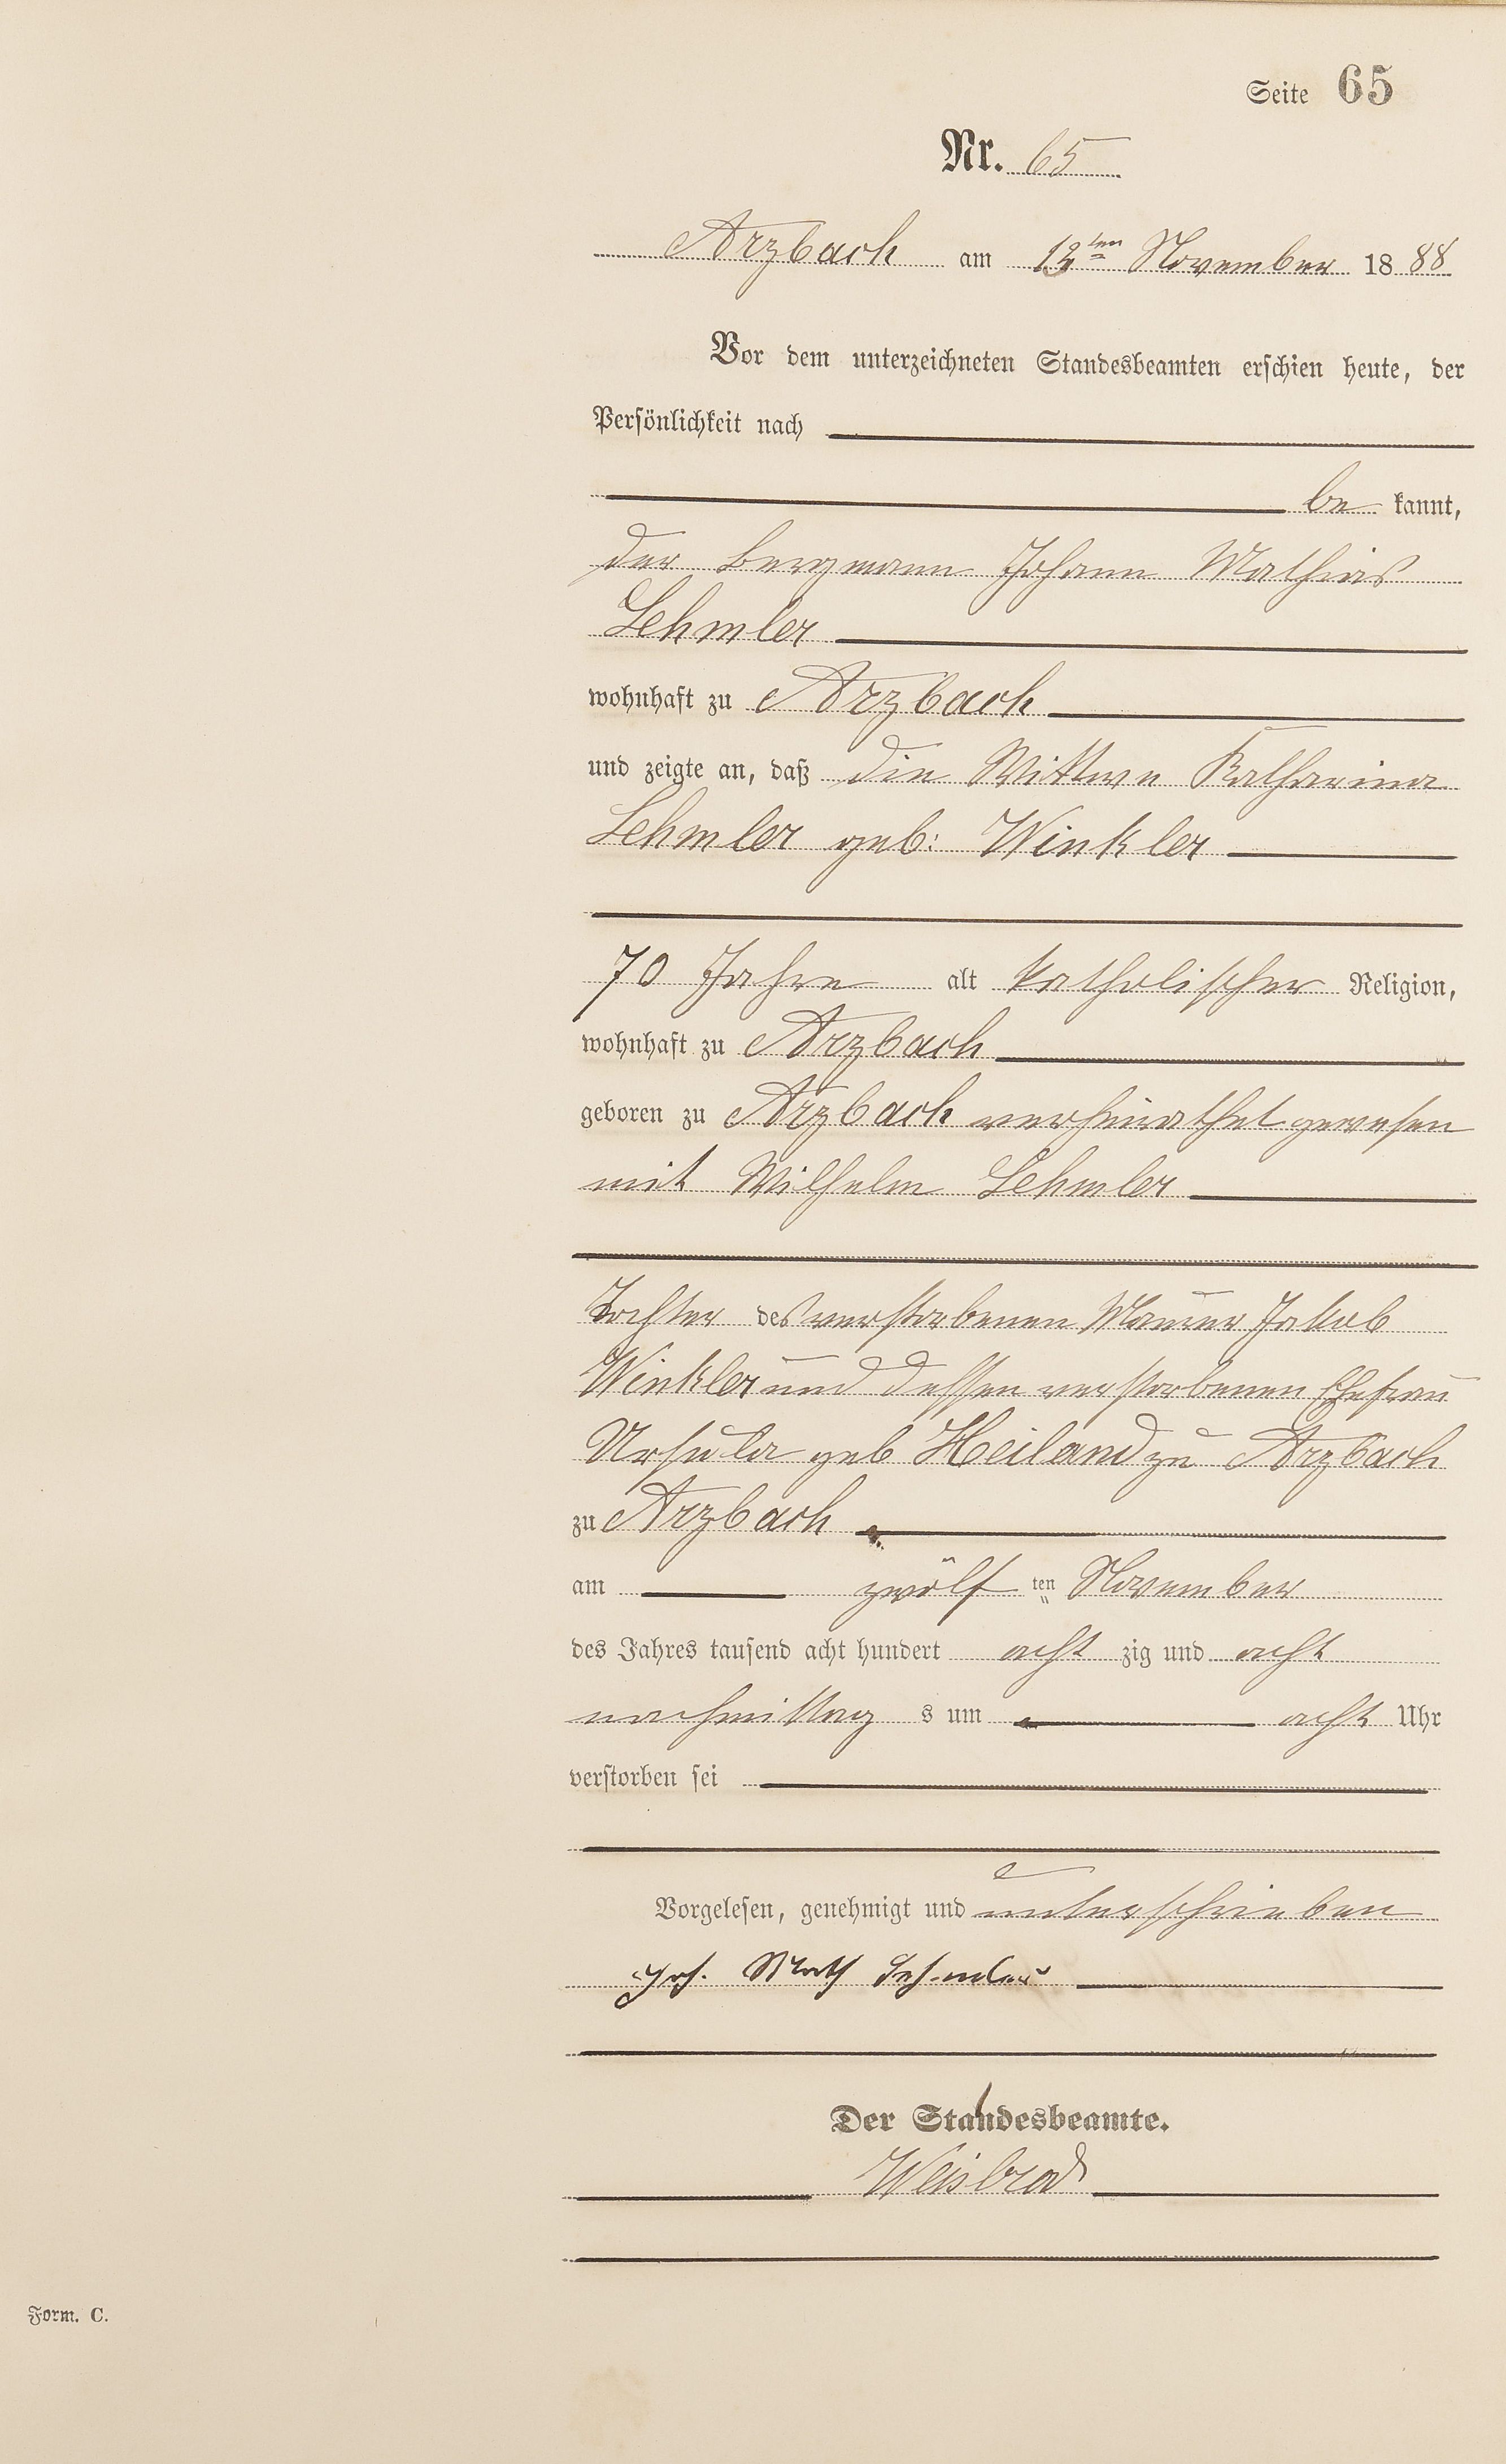 Seite 65
Nr. 65
Arzbach am 12ten November 1888
Vor dem unterzeichneten Standesbeamten erschien heute, der
Persönlichkeit nach
be kannt,
der Bergmann Johann Mathias
Lehmler
wohnhaft zu Arzbach
und zeigte an, daß die Wittwe Katharina
Lehmler geb: Winkler
70 Jahre alt katholischer Religion,
wohnhaft zu Arzbach
geboren zu Arzbach verheirathet gewesen
mit Wilhelm Lehmler
Tochter des verstorbenen Maurer Jakob
Winkler und dessen verstorbenen Ehefrau
Ursula geb Heiland zu Arzbach
zu Arzbach
am zwölf ten November
des Jahres tausend acht hundert acht zig und acht
nachmittag s um acht Uhr
verstorben sei
Vorgelesen, genehmigt und unterschrieben
Joh. Math Lehmler
Der Standesbeamte.
Weisbrod
Form. C.